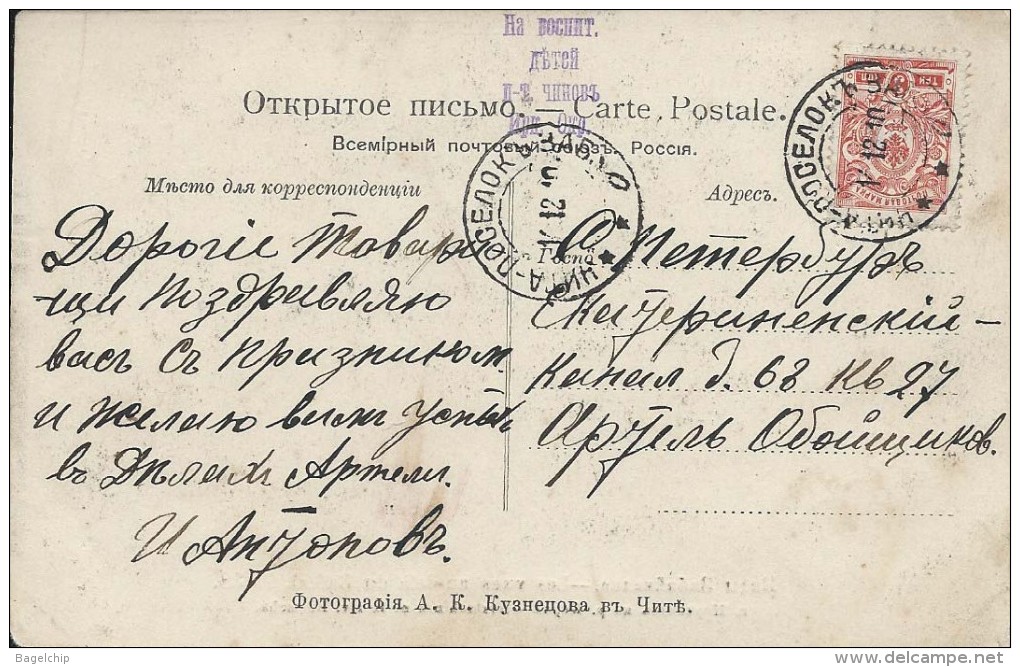 На воспит.
дѣтей
п-т. чиновъ
Ирк. Окр.
Открытое письмо. — Carte Postale.
Всемірный почтовый союзъ. Россія.
Мѣсто для корреспонденціи
Адресъ.
Дорогіе Товари
щи поздравляю
васъ съ празником
и желаю вам успѣх
въ Дѣлах Артели.
И Антоновъ.
С Петербургъ
Екатерининскій -
Канал д. 68 кв 27
Артель Обойщиков.
ЧИТА-ПОСЕЛОКЪ ЗАБ.
12 10
ЧИТА-ПОСЕЛОКЪ ЗАБ.
12 10
Фотографія А. К. Кузнецова въ Читѣ.
Bagelchip
delcampe.net